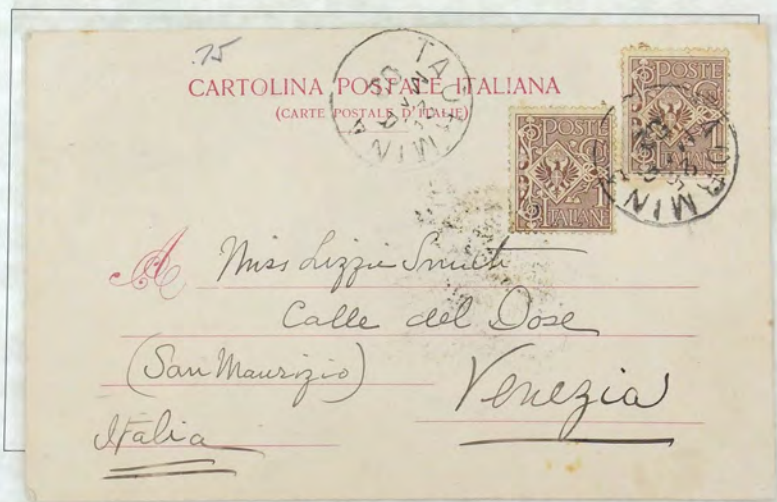 .15
CARTOLINA POSTALE ITALIANA
(CARTE POSTALE D'ITALIE)
TAORMINA
POSTE
ITALIANE
POSTE
1
ITALIANE
TAORMINA
A Miss Lizzie Smith
Calle del Dose
(San Maurizio)
Venezia
Italia